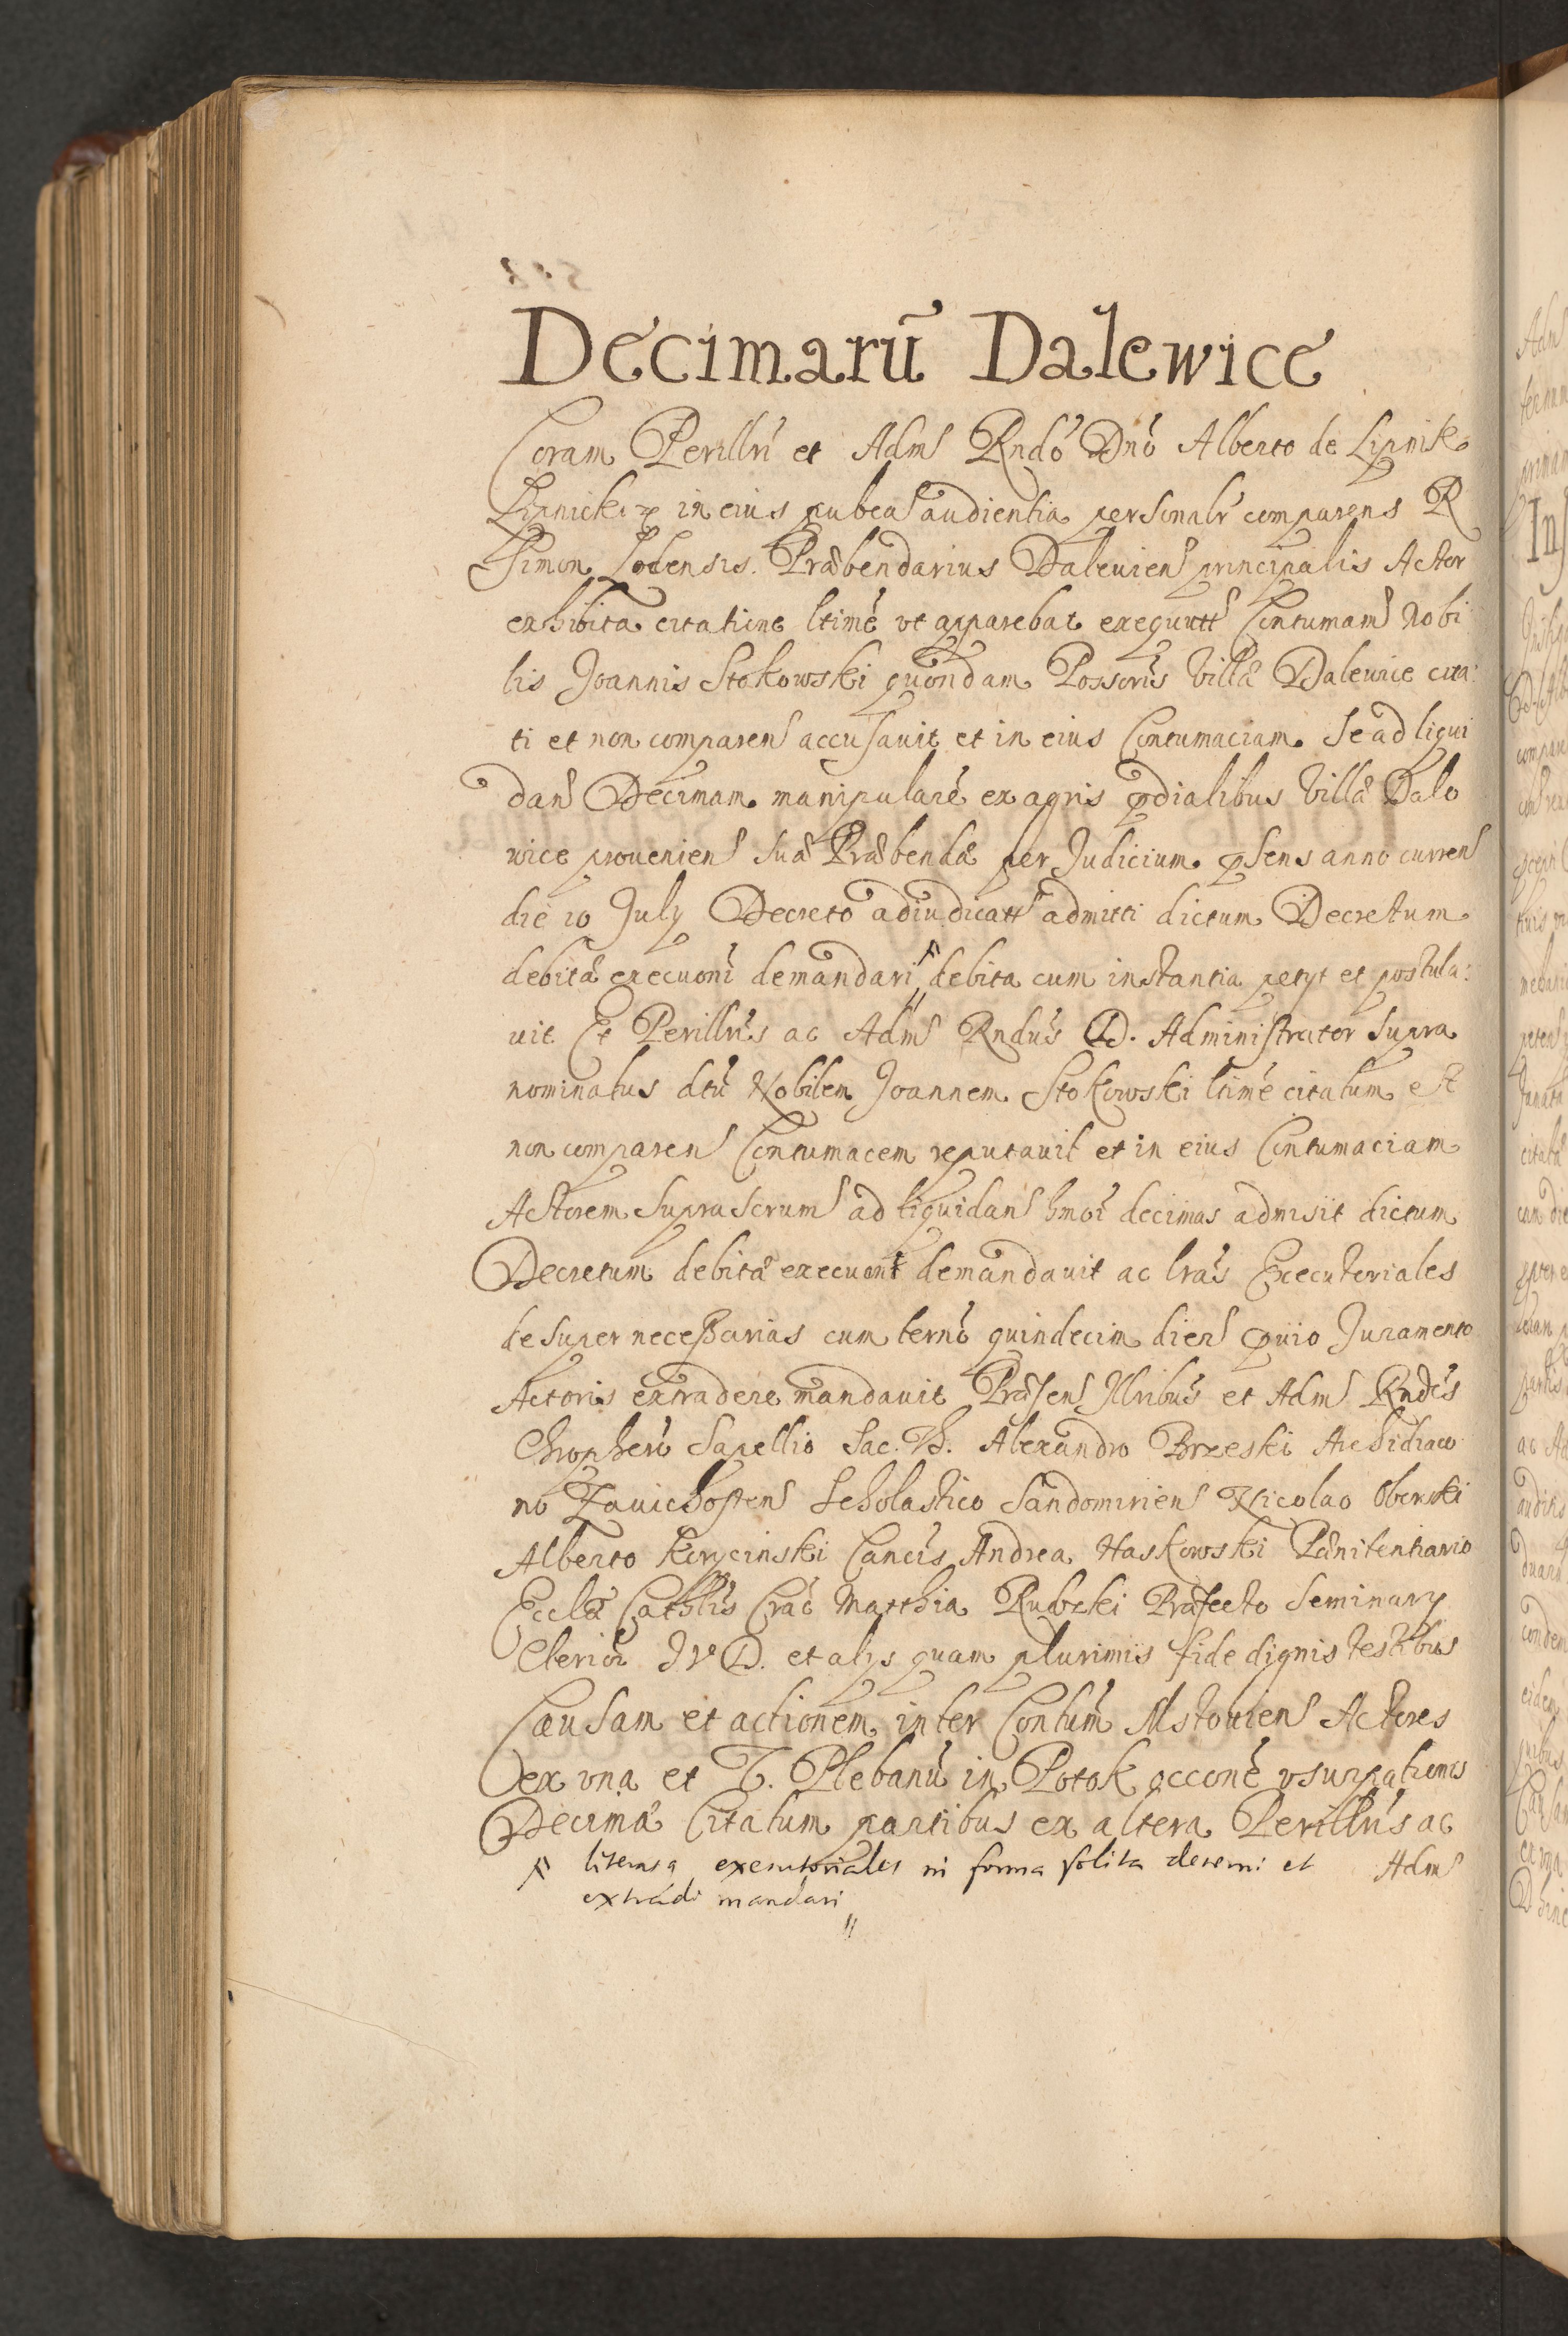 Decimarū Dalewice
Coram Perillri et Adm Rndo Dno Alberto de Lipnik
Lipnicki in eius pubca audientia personalr comparens R
Simon Jodensis Præbendarius Daleuien principalis Actor
exhibita citatione ltime vt apparebat exequutt Contumam Nobi
lis Joannis Stokowski quondam Possoris Villæ Daleuice cita:
ti et non comparen accusauit et in eius Contumaciam se ad liqui
dan Decimam manipulare ex agris pdialibus Villæ Dale
wice prouenien suæ Præbendæ per Judicium psens anno curren
die 10 July Decreto adiudicatt admitti dictum Decretum
debitæ execuoni demandari debita cum instantia petyt et postula:
uit Et Perillris ac Adm Rndus D. Administrator supra
nominatus dtu Nobilem Joannem Stokowski ltime citatum et
non comparen Contumacem reputauit et in eius Contumaciam
Actorem suprascrum ad liquidan hmoi decimas admisit dictum
Decretum debitæ execuoni demandauit ac lras Executoriales
desuper necessarias cum termo quindecim dier puio Juramento
Actoris extradere mandauit Præsen Illribus et Adm Rndis
Chrophero Sapellio Sac. Th. Alexandro Brzeski Archidiaco
no Zauichosten Scholastico Sandomirien Nicolao Oborski
Alberto Korycinski Cancis Andrea Haskowski Pænitentiario
Ecclæ Cathlis Crac Matthia Rubcki Præfecto Seminary
Clericor JVD. et alys quam plurimis fide dignis testibus
Causam et actionem inter Contum Mstouien Actores
ex vna et T. Plebanū in Potok occone vsurpationis
Decimæ Citatum partibus ex altera Perillris ac
Adm
literasq executoriales in forma solita decerni et
extradi mandari